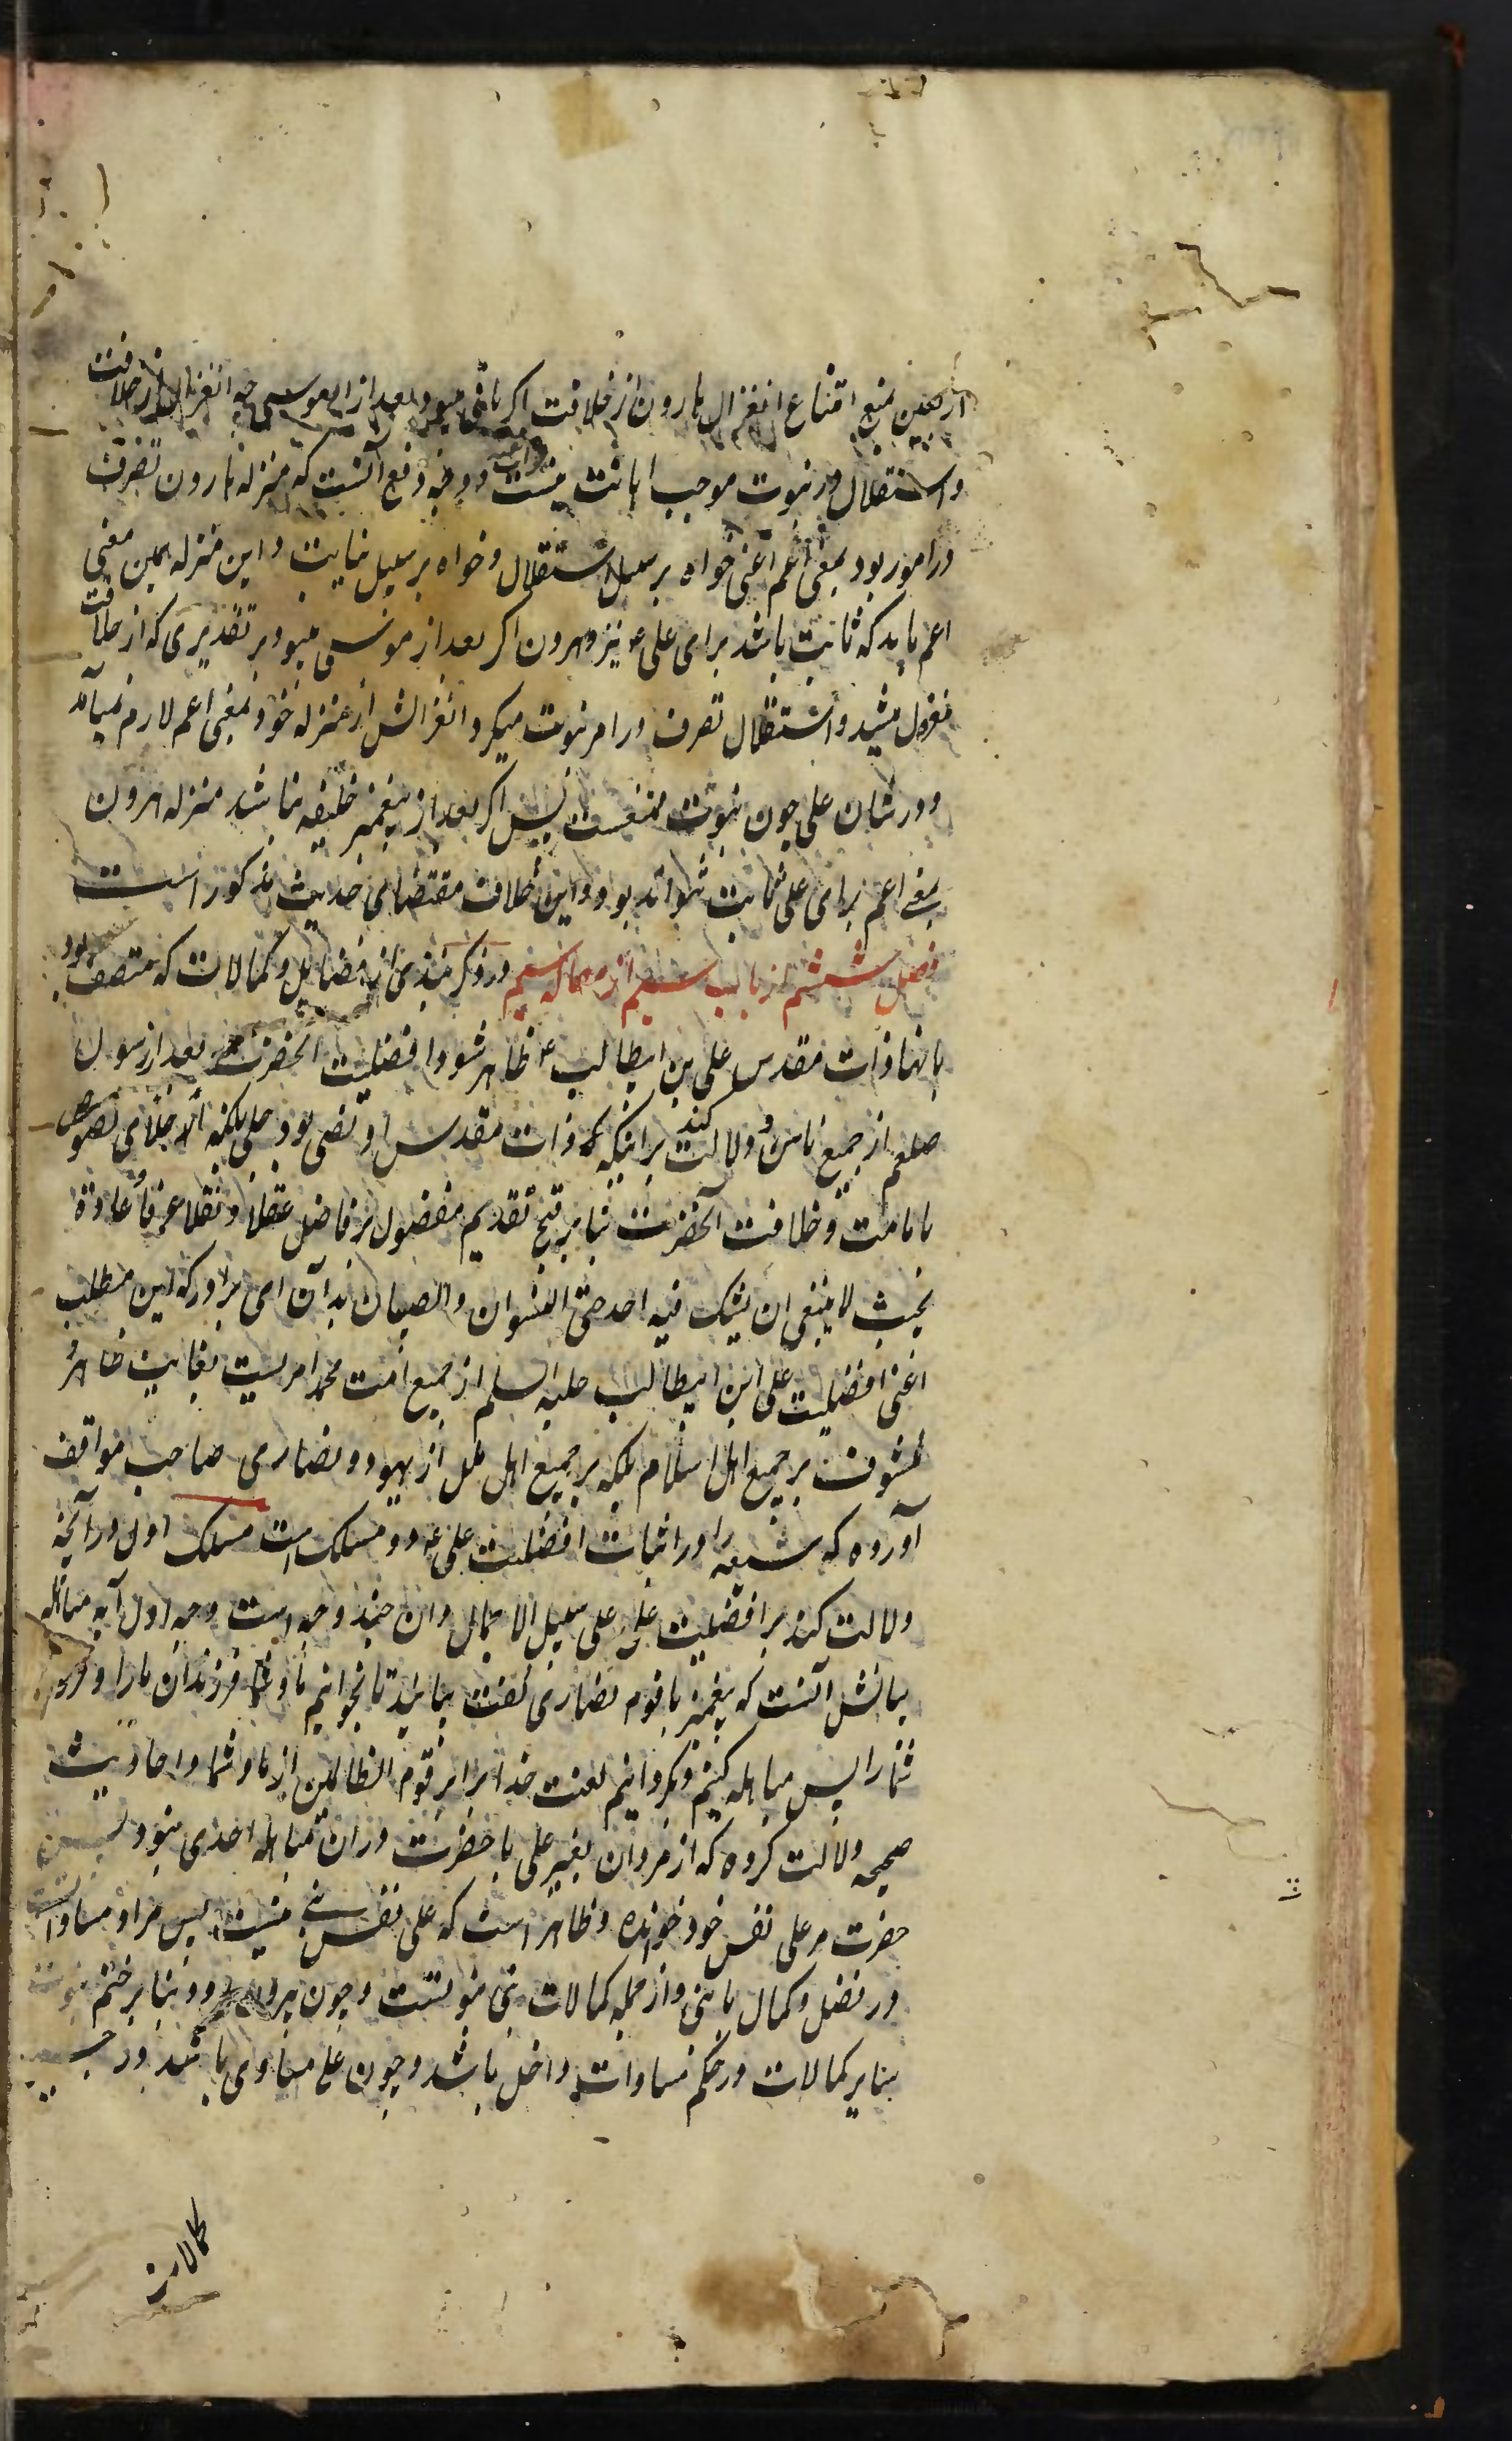 اربعین بمنع امتناع انعزال هارون از خلافت اگر باقی میبود بعد از موسی چه انعزال از خلافت
و استقلال در نبوت موجب اهانت نیست و وجه دفع آنست که منزله هارون تصرف
در امور بود بمعنی اعم اعنی خواه بر سبیل استقلال و خواه بر سبیل نیابت و این منزله بهمین معنی
اعم باید که ثابت باشد برای علی ع نیز و هرون اگر بعد از موسی میبود بر تقدیری که از خلافت
معزول میشد و استقلال تصرف در امر نبوت میکرد انعزالش از منزله خود بمعنی اعم لازم نمیآمد
و در شان علی چون نبوت منتفیست پس اگر بعد از پیغمبر خلیفه نباشد منزله هرون
بمعنی اعم برای علی ثابت نتواند بود و این خلاف مقتضای حدیث مذکور است
فصل ششم از باب سیم از مقاله سیم در ذکر نبذی از فضایل و کمالات که متصف بود
بانها ذات مقدس علی بن ابیطالب ع تا ظاهر شود افضلیت آنحضرت بعد از رسول
صلعم از جمیع ناس و دلالت کند بر اینکه ذات مقدس او نصی بود جلی بلکه اجلای نصوص
بامامت و خلافت آنحضرت بنا بر قبح تقدیم مفضول بر فاضل عقلا و نقلا عرفا و عادة
بحیث لا ینبغی ان یشک فیه احد حتی النسوان و الصبیان بدان ای برادر که این مطلب
اعنی افضلیت علی ابن ابیطالب علیه السلم از جمیع امت محمد امریست بغایت ظاهر و
مکشوف بر جمیع اهل اسلام بلکه بر جمیع اهل ملل از یهود و نصاری صاحب مواقف
آورده که شیعه را در اثبات افضلیت علی ع دو مسلک است مسلک اول در آنچه
دلالت کند بر افضلیت علی علی سبیل الاجمال و ان چند وجه است وجه اول آیه مباهله
بیانش آنست که پیغمبر با قوم نصاری گفت بیایید تا بخوانیم ما و شما فرزندان ما را و فرزندان
شما را پس مباهله کنیم و بگردانیم لعنت خدا را بر قوم الظالمین از ما و شما و احادیث
صحیحه دلالت کرده که از مردان بغیر علی با حضرت در ان مباهله احدی نبود پس
حضرت مر علی نفس خود خوانده و ظاهر است که علی نفس نبی نیست پس مراد مساوات است
در فضل و کمال با نبی و از جمله کمالات نبی نبوتست و چون بیرون رود بنا بر ختم نبوت
سایر کمالات در حکم مساوات داخل باشد و چون علی مساوی باشد در جمیع
کمالات